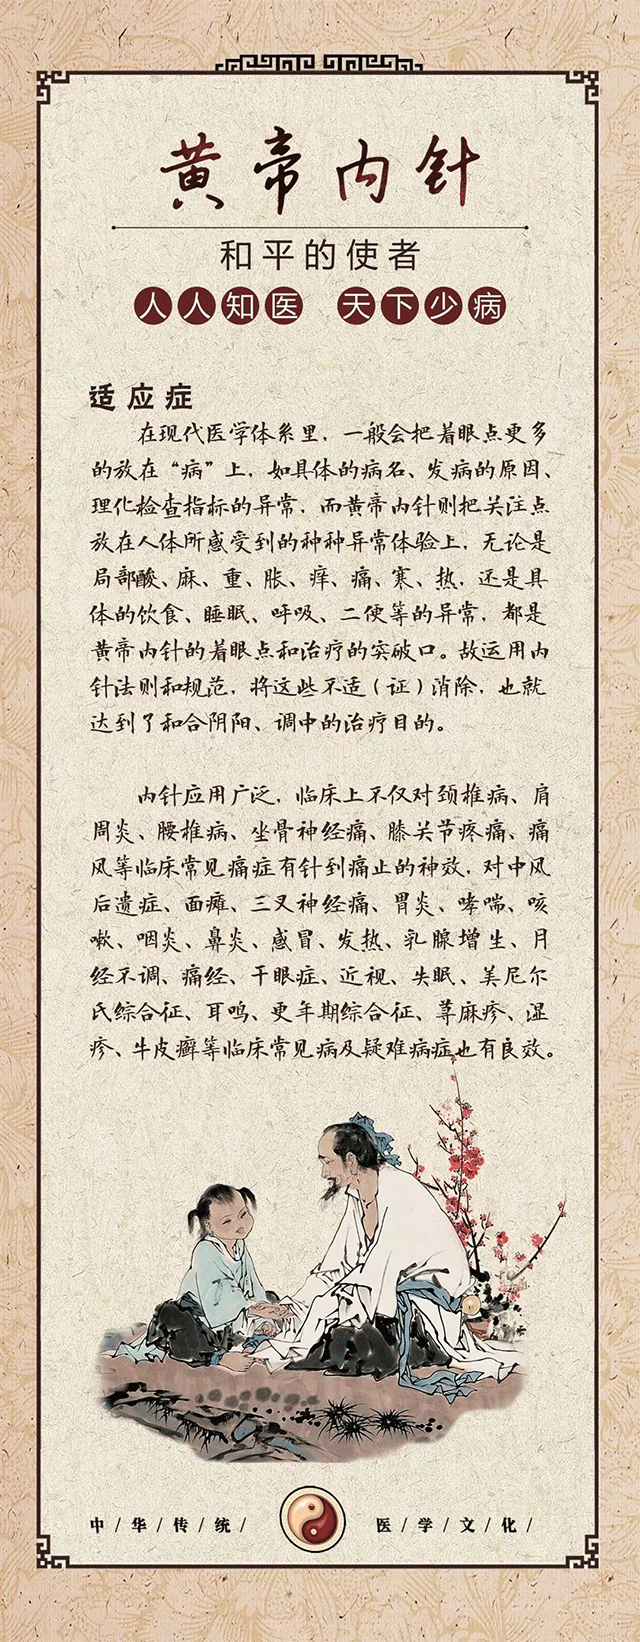 黄帝内针
和平的使者
人人知医 天下少病
适应症
在现代医学体系里，一般会把着眼点更多
的放在“病”上，如具体的病名、发病的原因、
理化检查指标的异常，而黄帝内针则把关注点
放在人体所感受到的种种异常体验上，无论是
局部酸、麻、重、胀、痒、痛、寒、热，还是具
体的饮食、睡眠、呼吸、二便等的异常，都是
黄帝内针的着眼点和治疗的突破口。故运用内
针法则和规范，将这些不适（证）消除，也就
达到了和合阴阳、调中的治疗目的。
内针应用广泛，临床上不仅对颈椎病、肩
周炎、腰椎病、坐骨神经痛、膝关节疼痛、痛
风等临床常见痛症有针到痛止的神效，对中风
后遗症、面瘫、三叉神经痛、胃炎、哮喘、咳
嗽、咽炎、鼻炎、感冒、发热、乳腺增生、月
经不调、痛经、干眼症、近视、失眠、美尼尔
氏综合征、耳鸣、更年期综合征、荨麻疹、湿
疹、牛皮癣等临床常见病及疑难病症也有良效。
中/华/传/统/ 医/学/文/化/